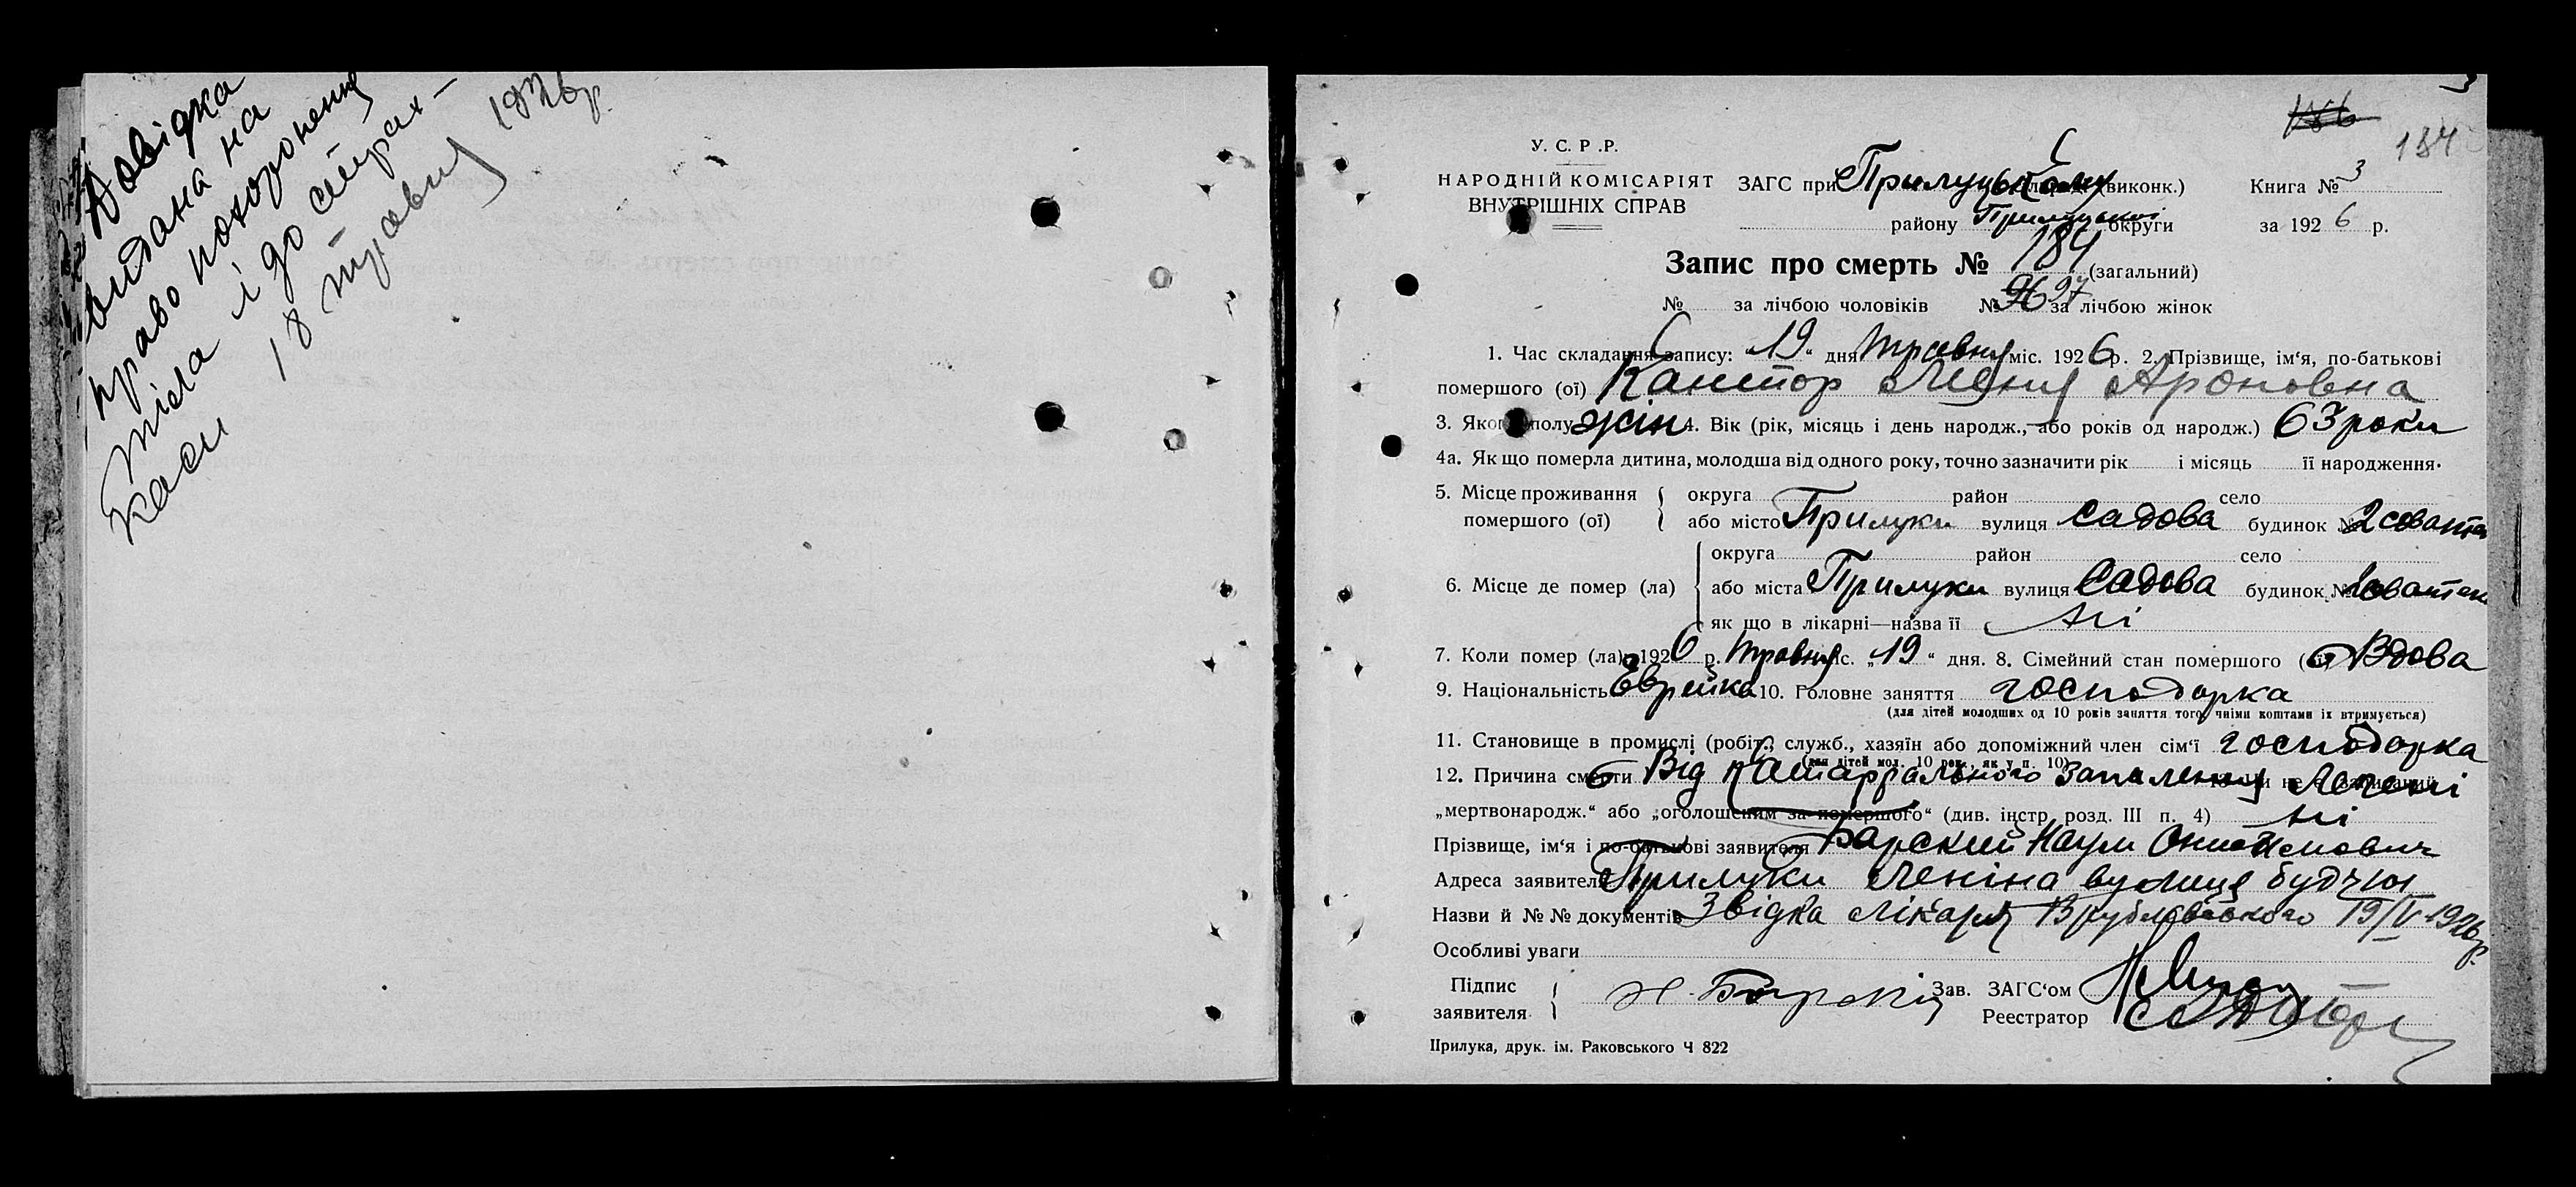 Довідка
видана на
право похоронення
тіла і до страх-
каси 18 травня 1926р.
186
184
У. С. Р .Р.
НАРОДНІЙ КОМІСАРІЯТ
ВНУТРІШНІХ СПРАВ
ЗАГС при Прилуцькому (виконк.) Книга № 3
району Прилуцької округи за 1926 р.
Запис про смерть № 184 (загальний)
№ за лічбою чоловіків № 96 97 за лічбою жінок
1. Час складання запису: „19“ дня травня міс. 1926 р. 2. Прізвище, ім‘я, по-батькові
помершого (ої) Кантор Меня Ароновна
3. Якого полу жін 4. Вік (рік, місяць і день народж., або років од народж.) 63 роки
4а. Як що померла дитина, молодша від одного року, точно зазначити рік і місяць її народження.
5. Місце проживання округа район село
помершого (ої) або місто Прилуки вулиця Садова будинок № 2
округа район село
6. Місце де помер (ла) або міста Прилуки вулиця Садова будинок №
як що в лікарні—назва її Ні
7. Коли помер (ла) 1926 р. травня міс. „19“ дня. 8. Сімейний стан помершого (ої) Вдова
9. Національність Єврейка 10. Головне заняття господарка
(для дітей молодших од 10 років заняття того, чиїми коштами їх втримується)
11. Становище в промислі (робіт., служб., хазяїн або допоміжний член сім‘ї господарка
(для дітей мол. 10 рок., як у п. 10)
12. Причина смерти Від Катаррального запалення Легені
„мертвонародж.“ або „оголошеним за помершого“ (див. інстр. розд. III п. 4) Ні
Прізвище, ім‘я і по-батькові заявителя Барский Наум
Адреса заявителя Прилуки Леніна вулиця буд
Назви й №№ документів Звідка лікаря 19/V-1926р.
Особливі уваги
Підпис
заявителя
Н. Барский
Зав. ЗАГС‘ом
Реестратор
Прилука, друк. ім. Раковського Ч 822